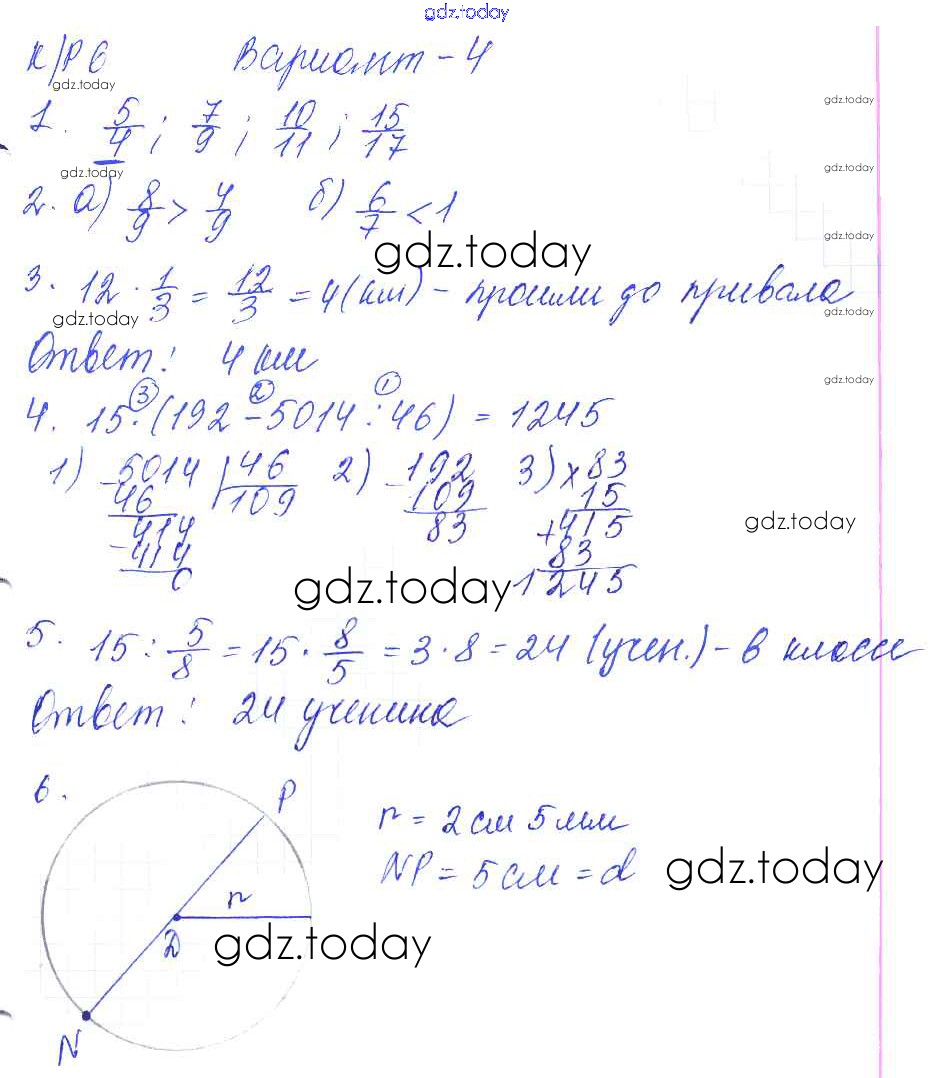 gdz.today
К/Р 6 Вариант - 4
gdz.today
1. 5/4 ; 7/9 ; 10/11 ; 15/17
gdz.today
gdz.today
gdz.today
2. а) 8/9 > 4/9 б) 6/7 < 1
gdz.today
gdz.today
3. 12 · 1/3 = 12/3 = 4 (км) - прошли до привала
gdz.today
gdz.today
Ответ: 4 км
gdz.today
3 2 1
4. 15 · (192 - 5014 : 46) = 1245
1) 5014 | 46 2) 192 3) × 83
- 46 109 - 109 15
414 83 + 415
- 414 83
0 1245
gdz.today
gdz.today
5. 15 : 5/8 = 15 · 8/5 = 3 · 8 = 24 (учен.) - в классе
Ответ: 24 ученика
6.
P
r = 2 см 5 мм
NP = 5 см = d
gdz.today
r
D
gdz.today
N